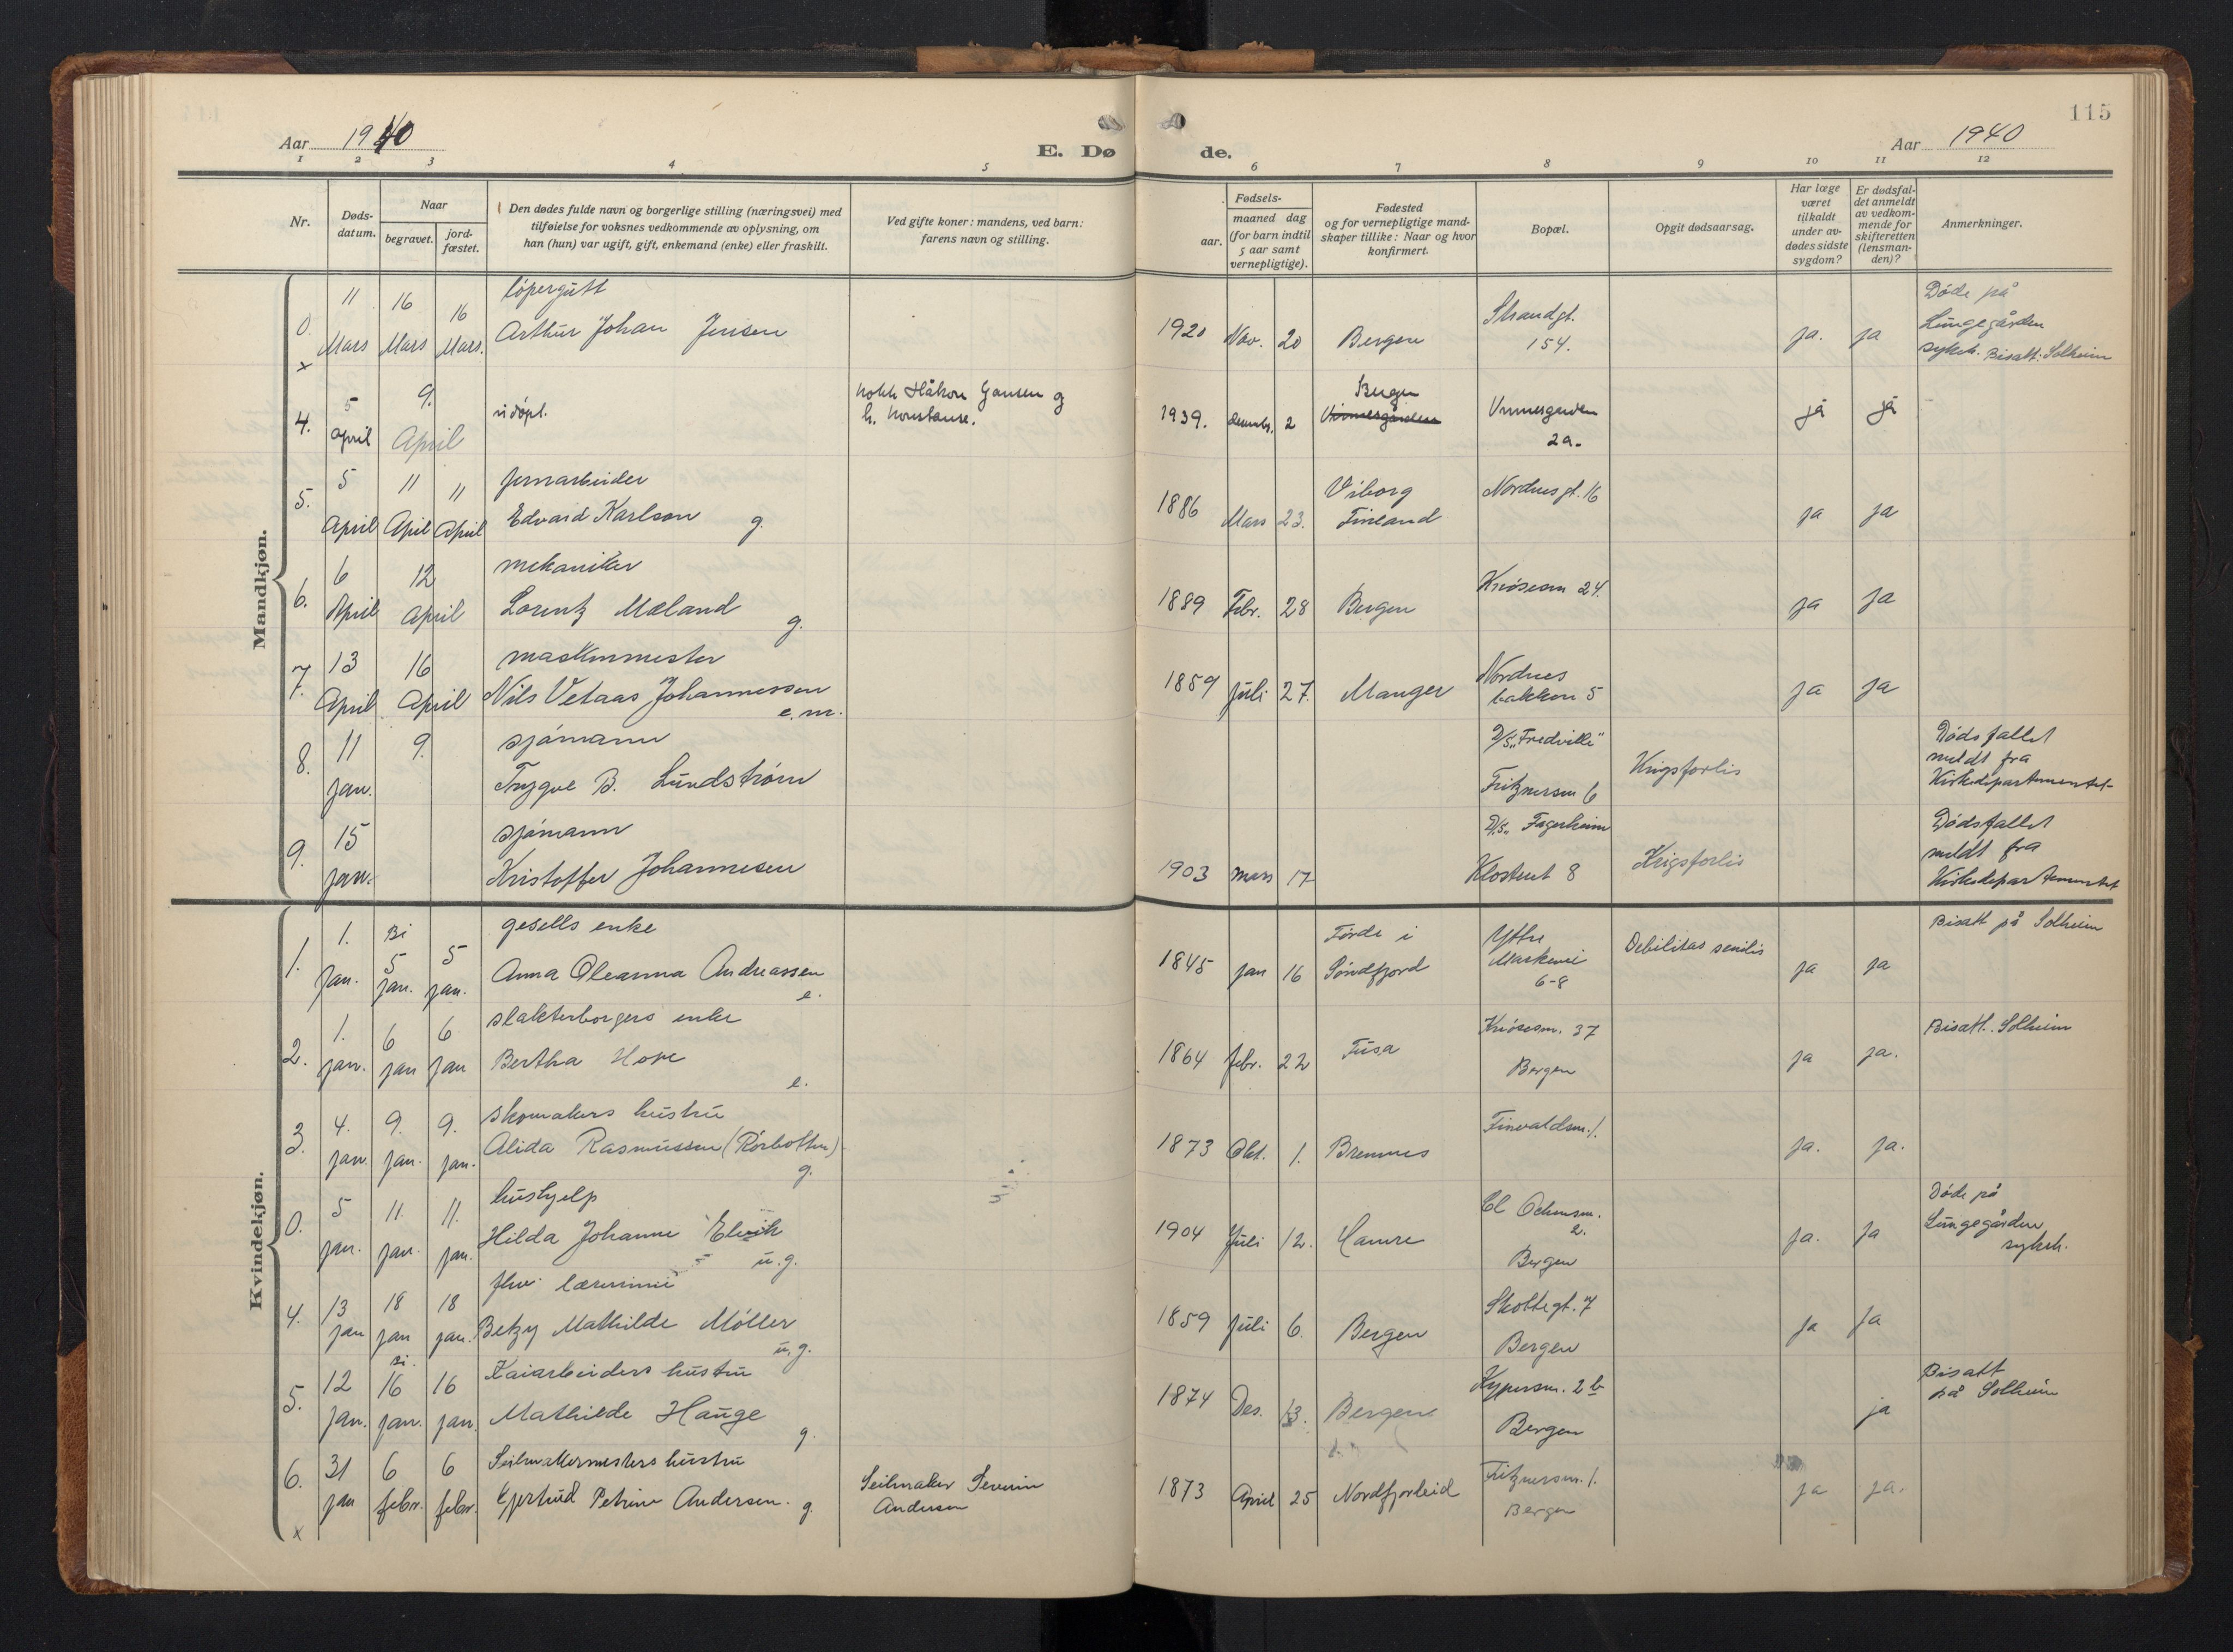 115
Aar 1940
E. Dø
de.
Aar 1940
1 2 3 4 5 6 7 8 9 10 11 12
Nr.
Døds-
datum.
Naar
begravet.
jord-
fæstet.
Den dødes fulde navn og borgerlige stilling (næringsvei) med
tilføielse for voksnes vedkommende av oplysning, om
han (hun) var ugift, gift, enkemand (enke) eller fraskilt.
Ved gifte koner: mandens, ved barn:
farens navn og stilling.
Fødsels-
aar.
maaned dag
(for barn indtil
5 aar samt
vernepligtige).
Fødested
og for vernepligtige mand-
skaper tillike: Naar og hvor
konfirmert.
Bopæl.
Opgit dødsaarsag.
Har læge
været
tilkaldt
under av-
dødes sidste
sygdom?
Er dødsfal-
det anmeldt
av vedkom-
mende for
skifteretten
(lensman-
den)?
Anmerkninger.
Mandkjøn.
0. x 11 Mars 16 Mars 16 Mars.
løpergutt
Arthur Johan Jensen
1920 Nov. 20 Bergen
Strandgt.
154.
ja. ja
Døde på
Lungegården
sykeh. Bisatt: Solheim
4. 5 april 9. April
udøpt.
kokk Håkon Jansen og
h. Konstanse.
1939. desembr. 2
Bergen
Vinnesgården
2a.
ja ja
5. 5 April 11 April 11 April
jernarbeider
Edvard Karlson g.
1886 Mars 23.
Viborg
Finland
Nordnesgt. 16
ja ja
6. 6 April 12 April
mekaniker
Lorentz Mæland g.
1889 Febr. 28 Bergen
Knøsesm 24.
ja ja
7. 13 April 16 April
maskinmester
Nils Vetaas Johannessen
e.m.
1859 Juli 27. Manger
Nordnes
bakken 5
ja ja
8. 11 jan. 9.
sjømann
Trygve B. Lundstrøm
D/S „Fredville"
Fritznersm 6
Krigsforlis
Dødsfallet
meldt fra
Kirkedepartementet
9. 15 jan.
sjømann
Kristoffer Johannesen
1903 mars 17
D/S „Fagerheim
Klosteret 8
Krigsforlis
Dødsfallet
meldt fra
Kirkedepartementet
Kvindekjøn.
1. 1. Jan. Bi 5 jan. 5 jan.
gesells enke
Anna Oleanna Andreassen
e.
1845 jan 16
Førde i
Søndfjord
Ytre
Markevei
6-8
Debilitas senilis
ja ja
Bisatt på Solheim
2. 1. jan. 6 jan 6 jan
slakterborgers enke
Bertha Hope
e.
1864 febr. 22 Fusa
Knøsesm. 37
Bergen
ja ja.
Bisatt. Solheim
3. 4. jan. 9. jan. 9. jan.
skomakers hustru
Alida Rasmussen (Rørbotten)
g.
1873 Okt. 1. Bremnes
Finvaldsm. 1.
ja. ja.
0. 5 jan. 11. jan. 11. jan.
hushjelp
Hilda Johanne Elvik
u.g.
1904 Juli 12. Hamre
Cl Ockensm.
2.
Bergen
ja. ja
Døde på
Lungegården
sykeh.
4. 13 jan 18 jan 18 jan.
fhv. lærerinne
Betzy Mathilde Møller
u.g.
1859 Juli 6. Bergen
Skottegt. 7
Bergen
ja ja
5. 12 jan. bi. 16 jan. 16 jan
Kaiarbeiders hustru
Mathilde Hauge
g.
1874 Des. 13. Bergen
Kypersm. 2b
Bergen
ja
Bisatt
på Solheim
6. x 31 jan 6 febr. 6 febr.
Seilmakermesters hustru
Gjertrud Petrine Andersen. g
Seilmaker Severin
Andersen
1873 April 25 Nordfjordeid
Fritznersm. 1.
Bergen
ja ja.